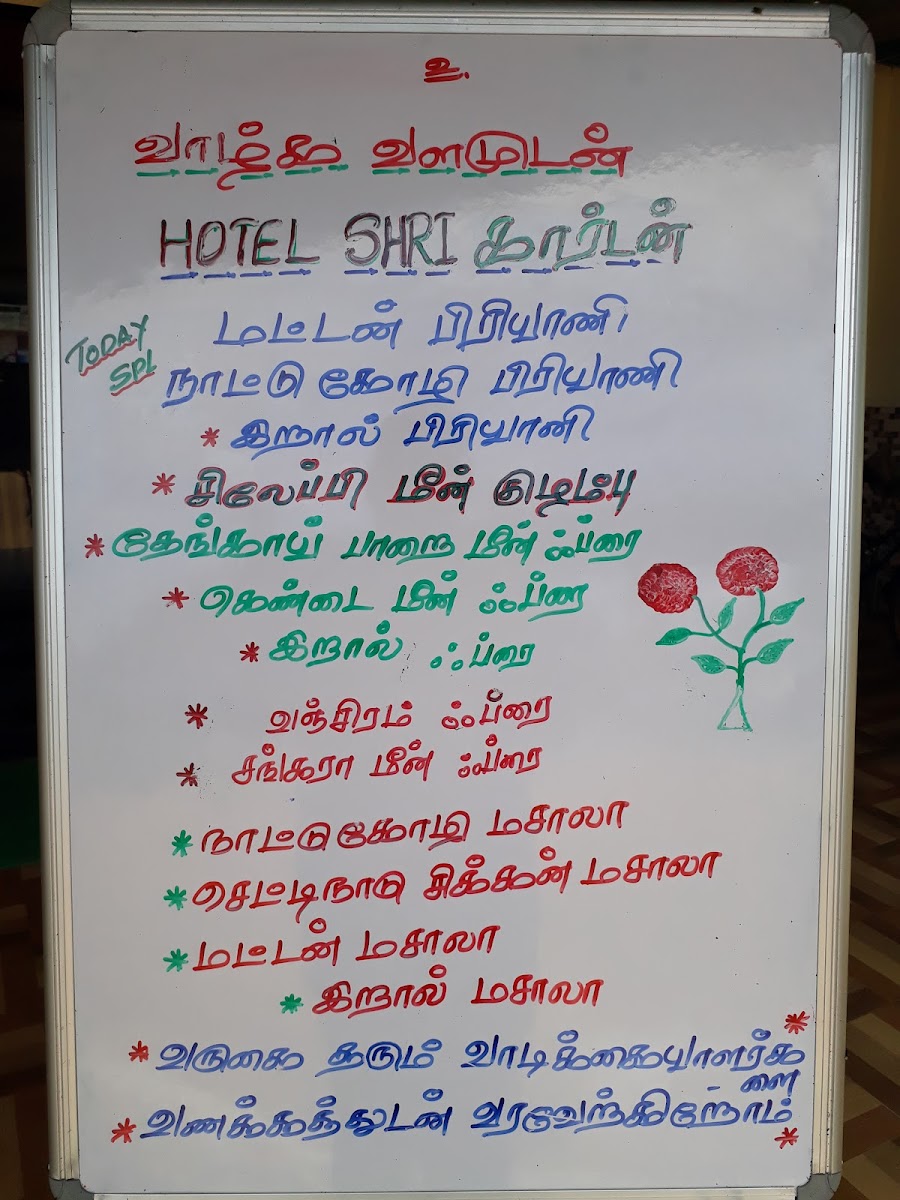 உ.
வாழ்க வளமுடன்
HOTEL SHRI கார்டன்
TODAY
SPL
மட்டன் பிரியாணி
நாட்டு கோழி பிரியாணி
* இறால் பிரியானி
* சிலேப்பி மீன் குழம்பு
* தேங்காய் பாறை மீன் ஃப்ரை
* கெண்டை மீன் ஃப்ரை
* இறால் ஃப்ரை
* வஞ்சிரம் ஃப்ரை
* சங்கரா மீன் ஃப்ரை
* நாட்டுகோழி மசாலா
* செட்டிநாடு சிக்கன் மசாலா
* மட்டன் மசாலா
* இறால் மசாலா
* வருகை தரும் வாடிக்கையாளர்க
ளை *
* வணக்கத்துடன் வரவேற்கிறோம் *